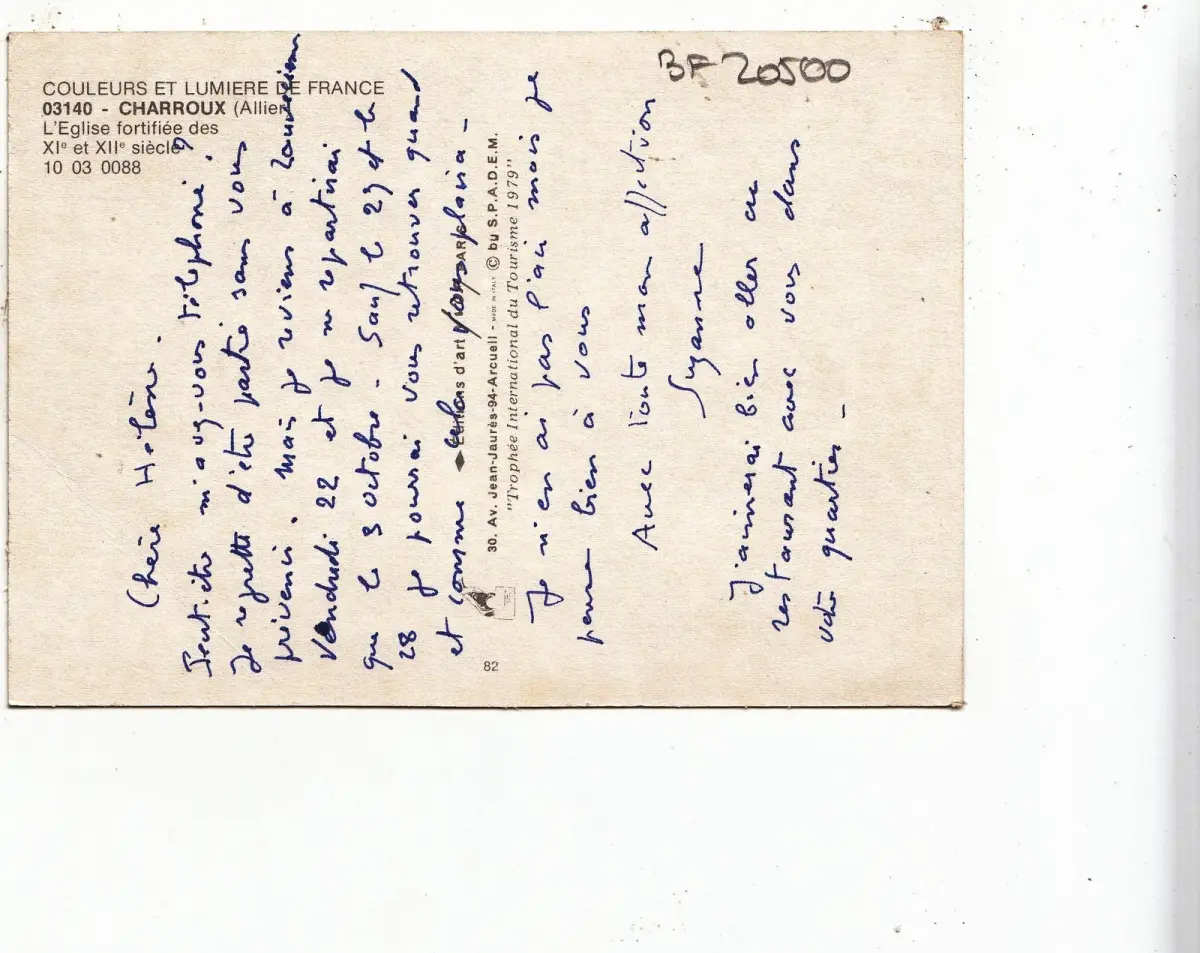 COULEURS ET LUMIERE DE FRANCE
03140 - CHARROUX (Allier)
L'Eglise fortifiée des
XIe et XIIe siècle
10 03 0088
BF 20500
Chère Hélène.
Peut-être m'avez-vous téléphoné ?
Je regrette d'être partie sans vous
prévenir. Mais je reviens à
Vendredi 22 et je ne repartirai
que le 3 octobre - Sauf le 29 et le
28 je pourrai vous retrouver quand
et comme cela vous plaira -
Editions d'art
30. Av. Jean-Jaurès-94-Arcueil - MADE IN ITALY © by S.P.A.D.E.M.
"Trophée International du Tourisme 1979"
82
Je n'en ai pas l'air mais je
pense bien à vous
Avec toute mon affection
Suzanne
J'aimerai bien aller au
restaurant avec vous dans
votre quartier -